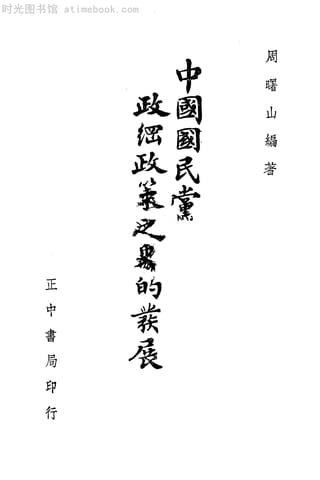 时光图书馆 atimebook.com
周曙山編著
中國國民黨
政綱政策之的發展
正中書局印行